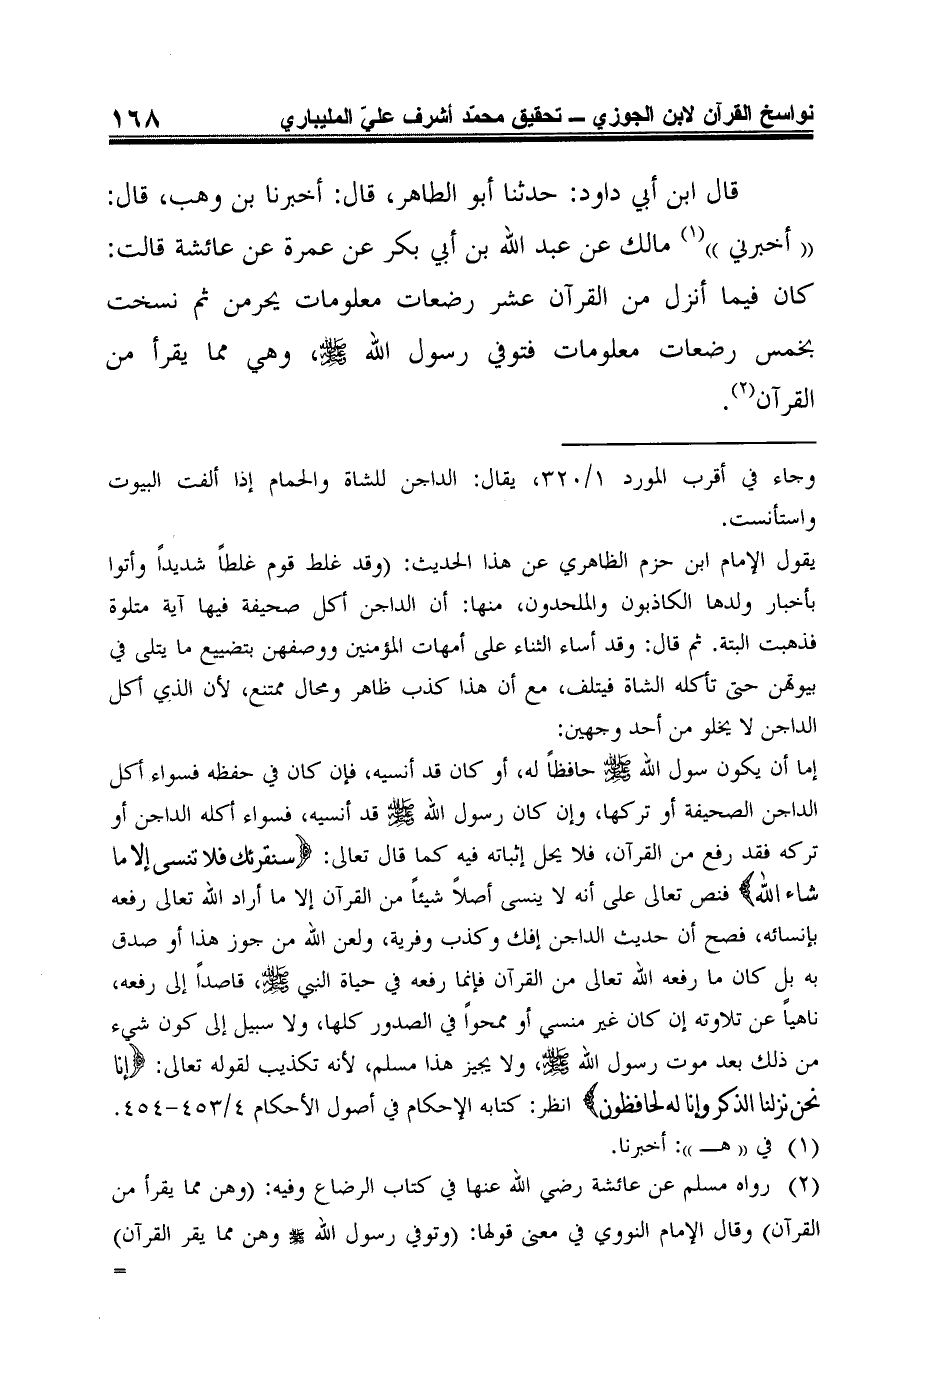 نواسخ القرآن لابن الجوزي ــ تحقيق محمّد أشرف عليّ المليباري ١٦٨
قال ابن أبي داود: حدثنا أبو الطاهر، قال: أخبرنا بن وهب، قال:
(( أخبرني ))(١) مالك عن عبد الله بن أبي بكر عن عمرة عن عائشة قالت:
كان فيما أنزل من القرآن عشر رضعات معلومات يحرمن ثم نسخت
بخمس رضعات معلومات فتوفي رسول الله ﷺ، وهي مما يقرأ من
القرآن(٢).
وجاء في أقرب المورد ٣٢٠/١، يقال: الداجن للشاة والحمام إذا ألفت البيوت
واستأنست.
يقول الإمام ابن حزم الظاهري عن هذا الحديث: (وقد غلط قوم غلطاً شديداً وأتوا
بأخبار ولدها الكاذبون والملحدون، منها: أن الداجن أكل صحيفة فيها آية متلوة
فذهبت البتة. ثم قال: وقد أساء الثناء على أمهات المؤمنين ووصفهن بتضييع ما يتلى في
بيوتهن حتى تأكله الشاة فيتلف، مع أن هذا كذب ظاهر ومحال ممتنع، لأن الذي أكل
الداجن لا يخلو من أحد وجهين:
إما أن يكون سول الله ﷺ حافظاً له، أو كان قد أنسيه، فإن كان في حفظه فسواء أكل
الداجن الصحيفة أو تركها، وإن كان رسول الله ﷺ قد أنسيه، فسواء أكله الداجن أو
تركه فقد رفع من القرآن، فلا يحل إثباته فيه كما قال تعالى: ﴿سنقرئك فلا تنسى إلا ما
شاء الله﴾ فنص تعالى على أنه لا ينسى أصلاً شيئاً من القرآن إلا ما أراد الله تعالى رفعه
بإنسائه، فصح أن حديث الداجن إفك وكذب وفرية، ولعن الله من جوز هذا أو صدق
به بل كان ما رفعه الله تعالى من القرآن فإنما رفعه في حياة النبي ﷺ، قاصداً إلى رفعه،
ناهياً عن تلاوته إن كان غير منسي أو ممحواً في الصدور كلها، ولا سبيل إلى كون شيء
من ذلك بعد موت رسول الله ﷺ، ولا يجيز هذا مسلم، لأنه تكذيب لقوله تعالى: ﴿إنا
نحن نزلنا الذكر وإنا له لحافظون﴾ انظر: كتابه الإحكام في أصول الأحكام ٤٥٣/٤-٤٥٤.
(١) في (( هــ )): أخبرنا.
(٢) رواه مسلم عن عائشة رضي الله عنها في كتاب الرضاع وفيه: (وهن مما يقرأ من
القرآن) وقال الإمام النووي في معنى قولها: (وتوفي رسول الله ﷺ وهن مما يقر القرآن)
=